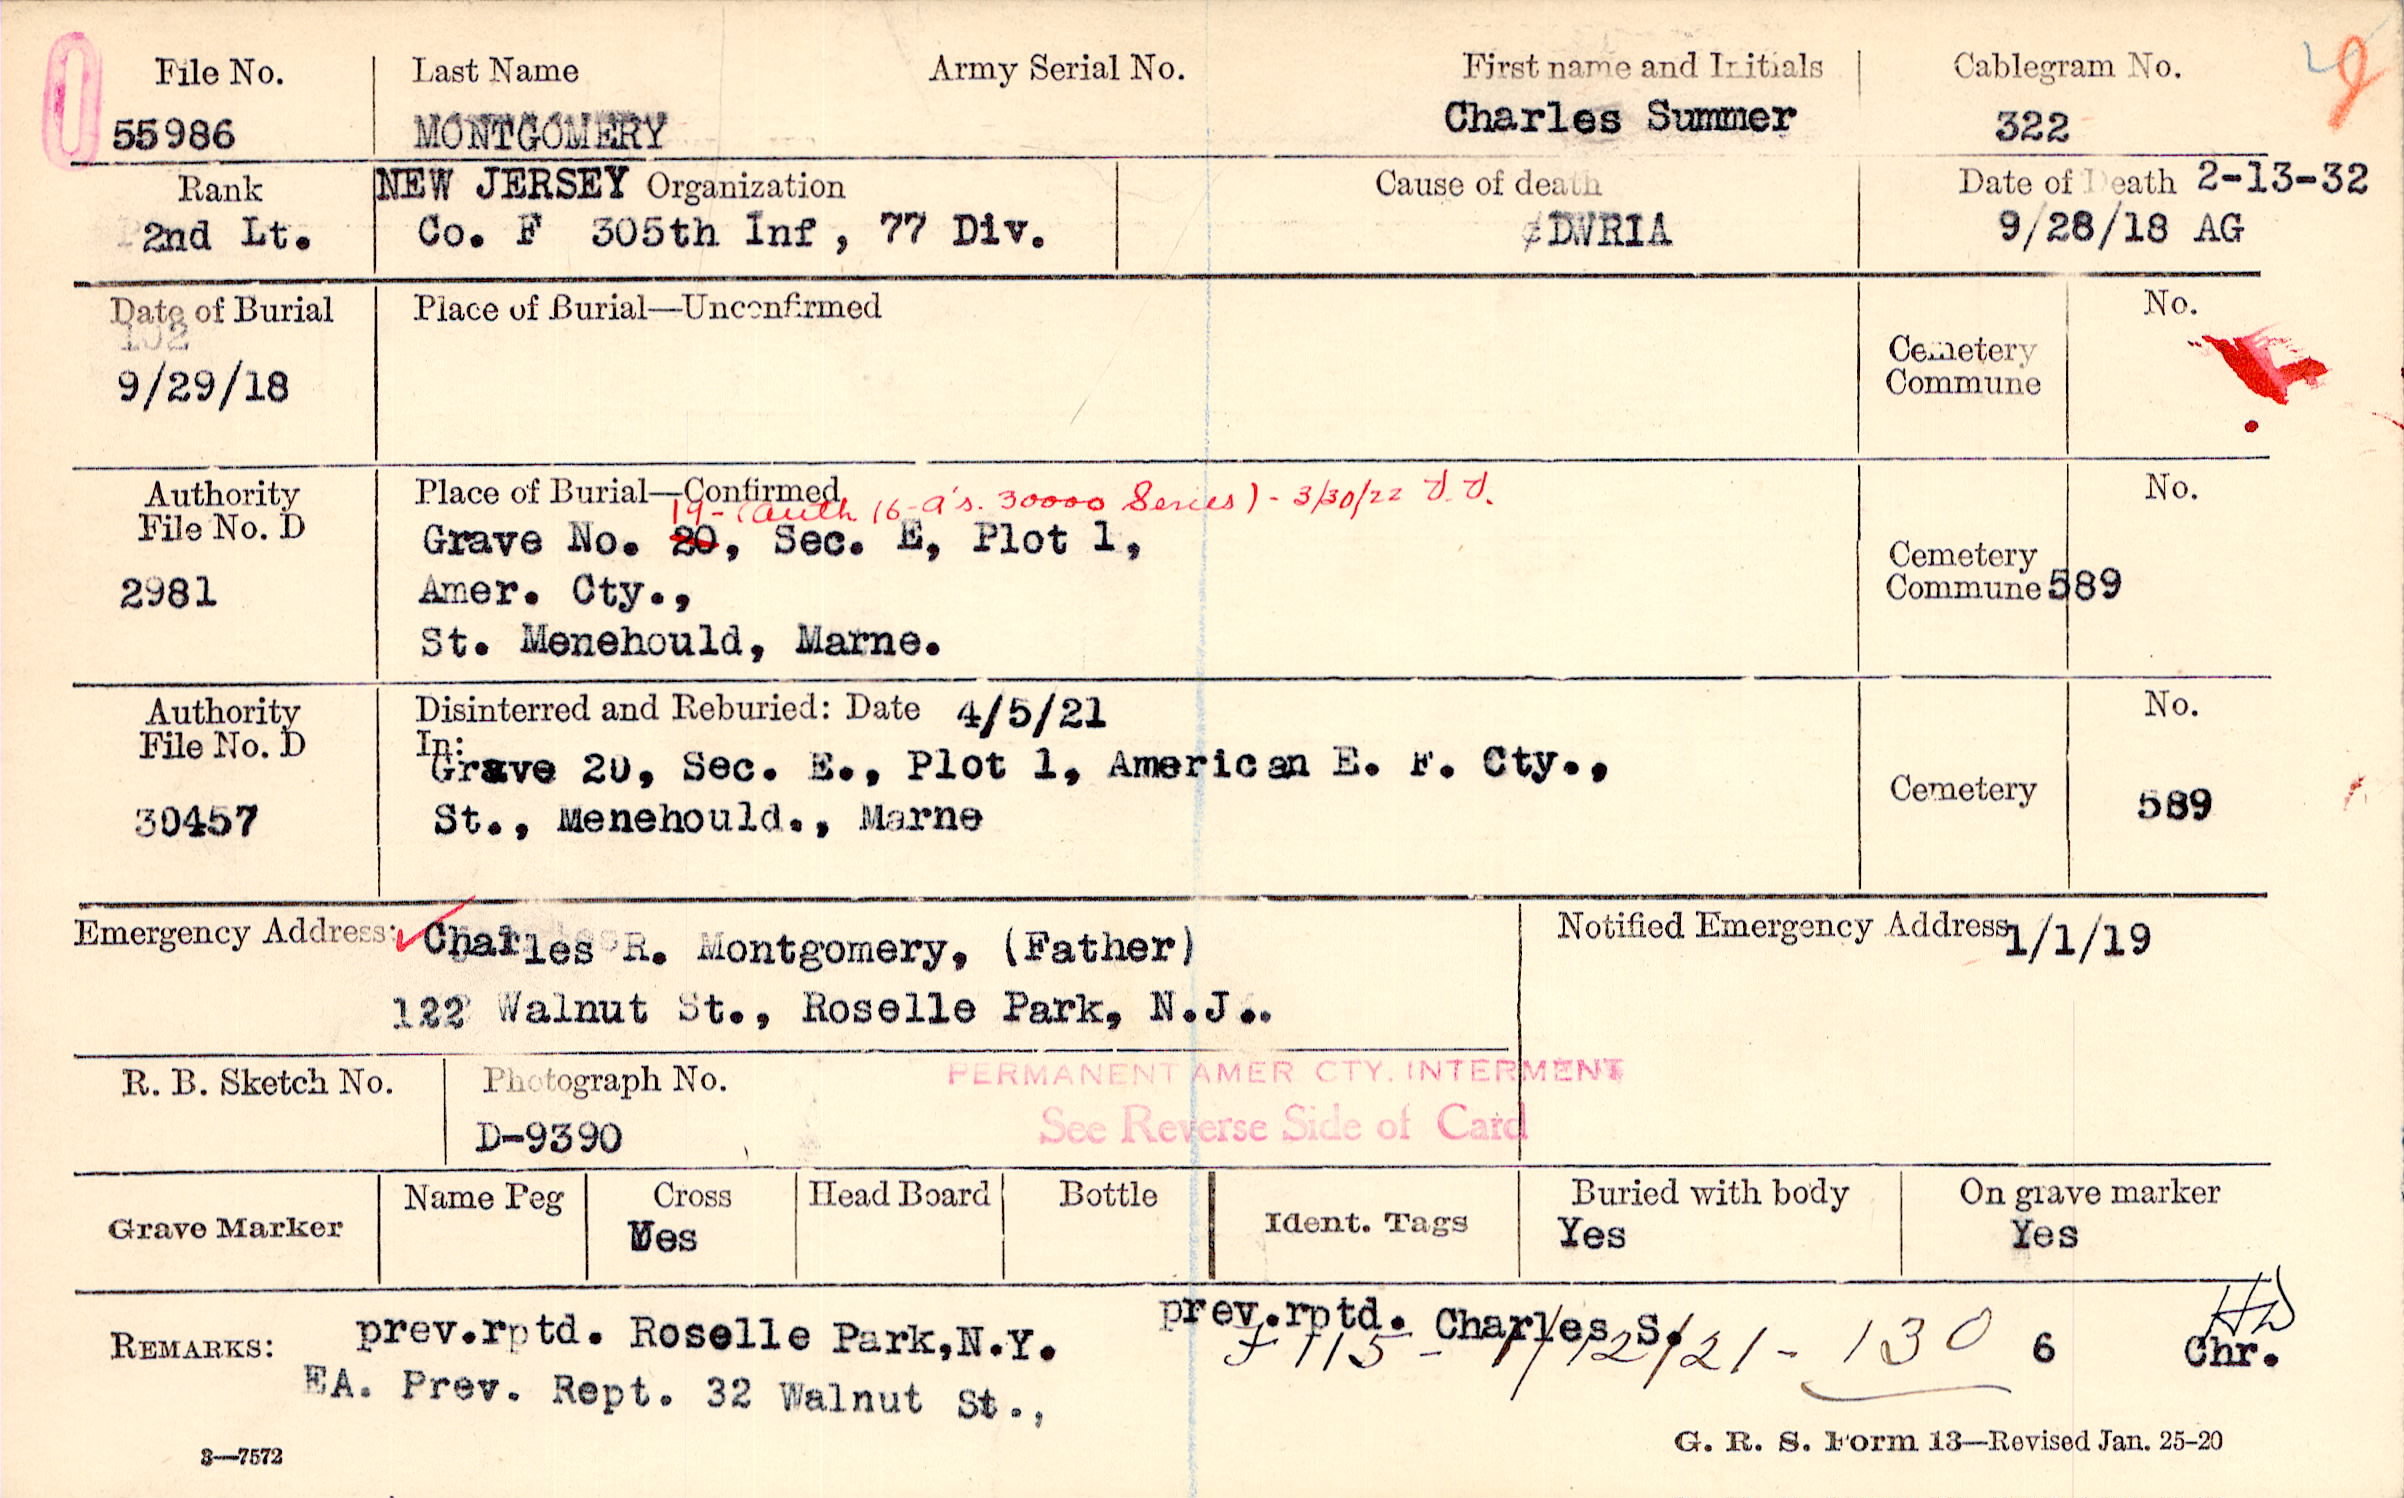 File No. Last Name Army Serial No. First name and Initials Cablegram No.
55986 MONTGOMERY Charles Summer 322
Rank NEW JERSEY Organization Cause of death Date of Death 2-13-32
2nd Lt. Co. F 305th Inf, 77 Div. DWRIA 9/28/18 AG
Date of Burial Place of Burial—Unconfirmed No.
9/29/18
Cemetery
Commune
Authority Place of Burial—Confirmed No.
19-(Auth 16-a's. 30000 Series) - 3/30/22
File No. D Grave No. 20, Sec. E, Plot 1,
2981 Amer. Cty.,
St. Menehould, Marne.
Cemetery
Commune 589
Authority Disinterred and Reburied: Date 4/5/21 No.
File No. D In:
Grave 20, Sec. E., Plot 1, American E. F. Cty.,
30457 St., Menehould., Marne
Cemetery 589
Emergency Address: Charles R. Montgomery, (Father) Notified Emergency Address 1/1/19
122 Walnut St., Roselle Park, N.J..
R. B. Sketch No. Photograph No. PERMANENT AMER CTY. INTERMENT
D-9390 See Reverse Side of Card
Grave Marker Name Peg Cross Head Board Bottle Ident. Tags Buried with body On grave marker
Yes Yes Yes
REMARKS: prev.rptd. Roselle Park,N.Y. prev.rptd. Charles S.
115 - 1/12/21 - 130 6 Chr.
EA. Prev. Rept. 32 Walnut St.,
3—7572 G. R. S. Form 13—Revised Jan. 25-20